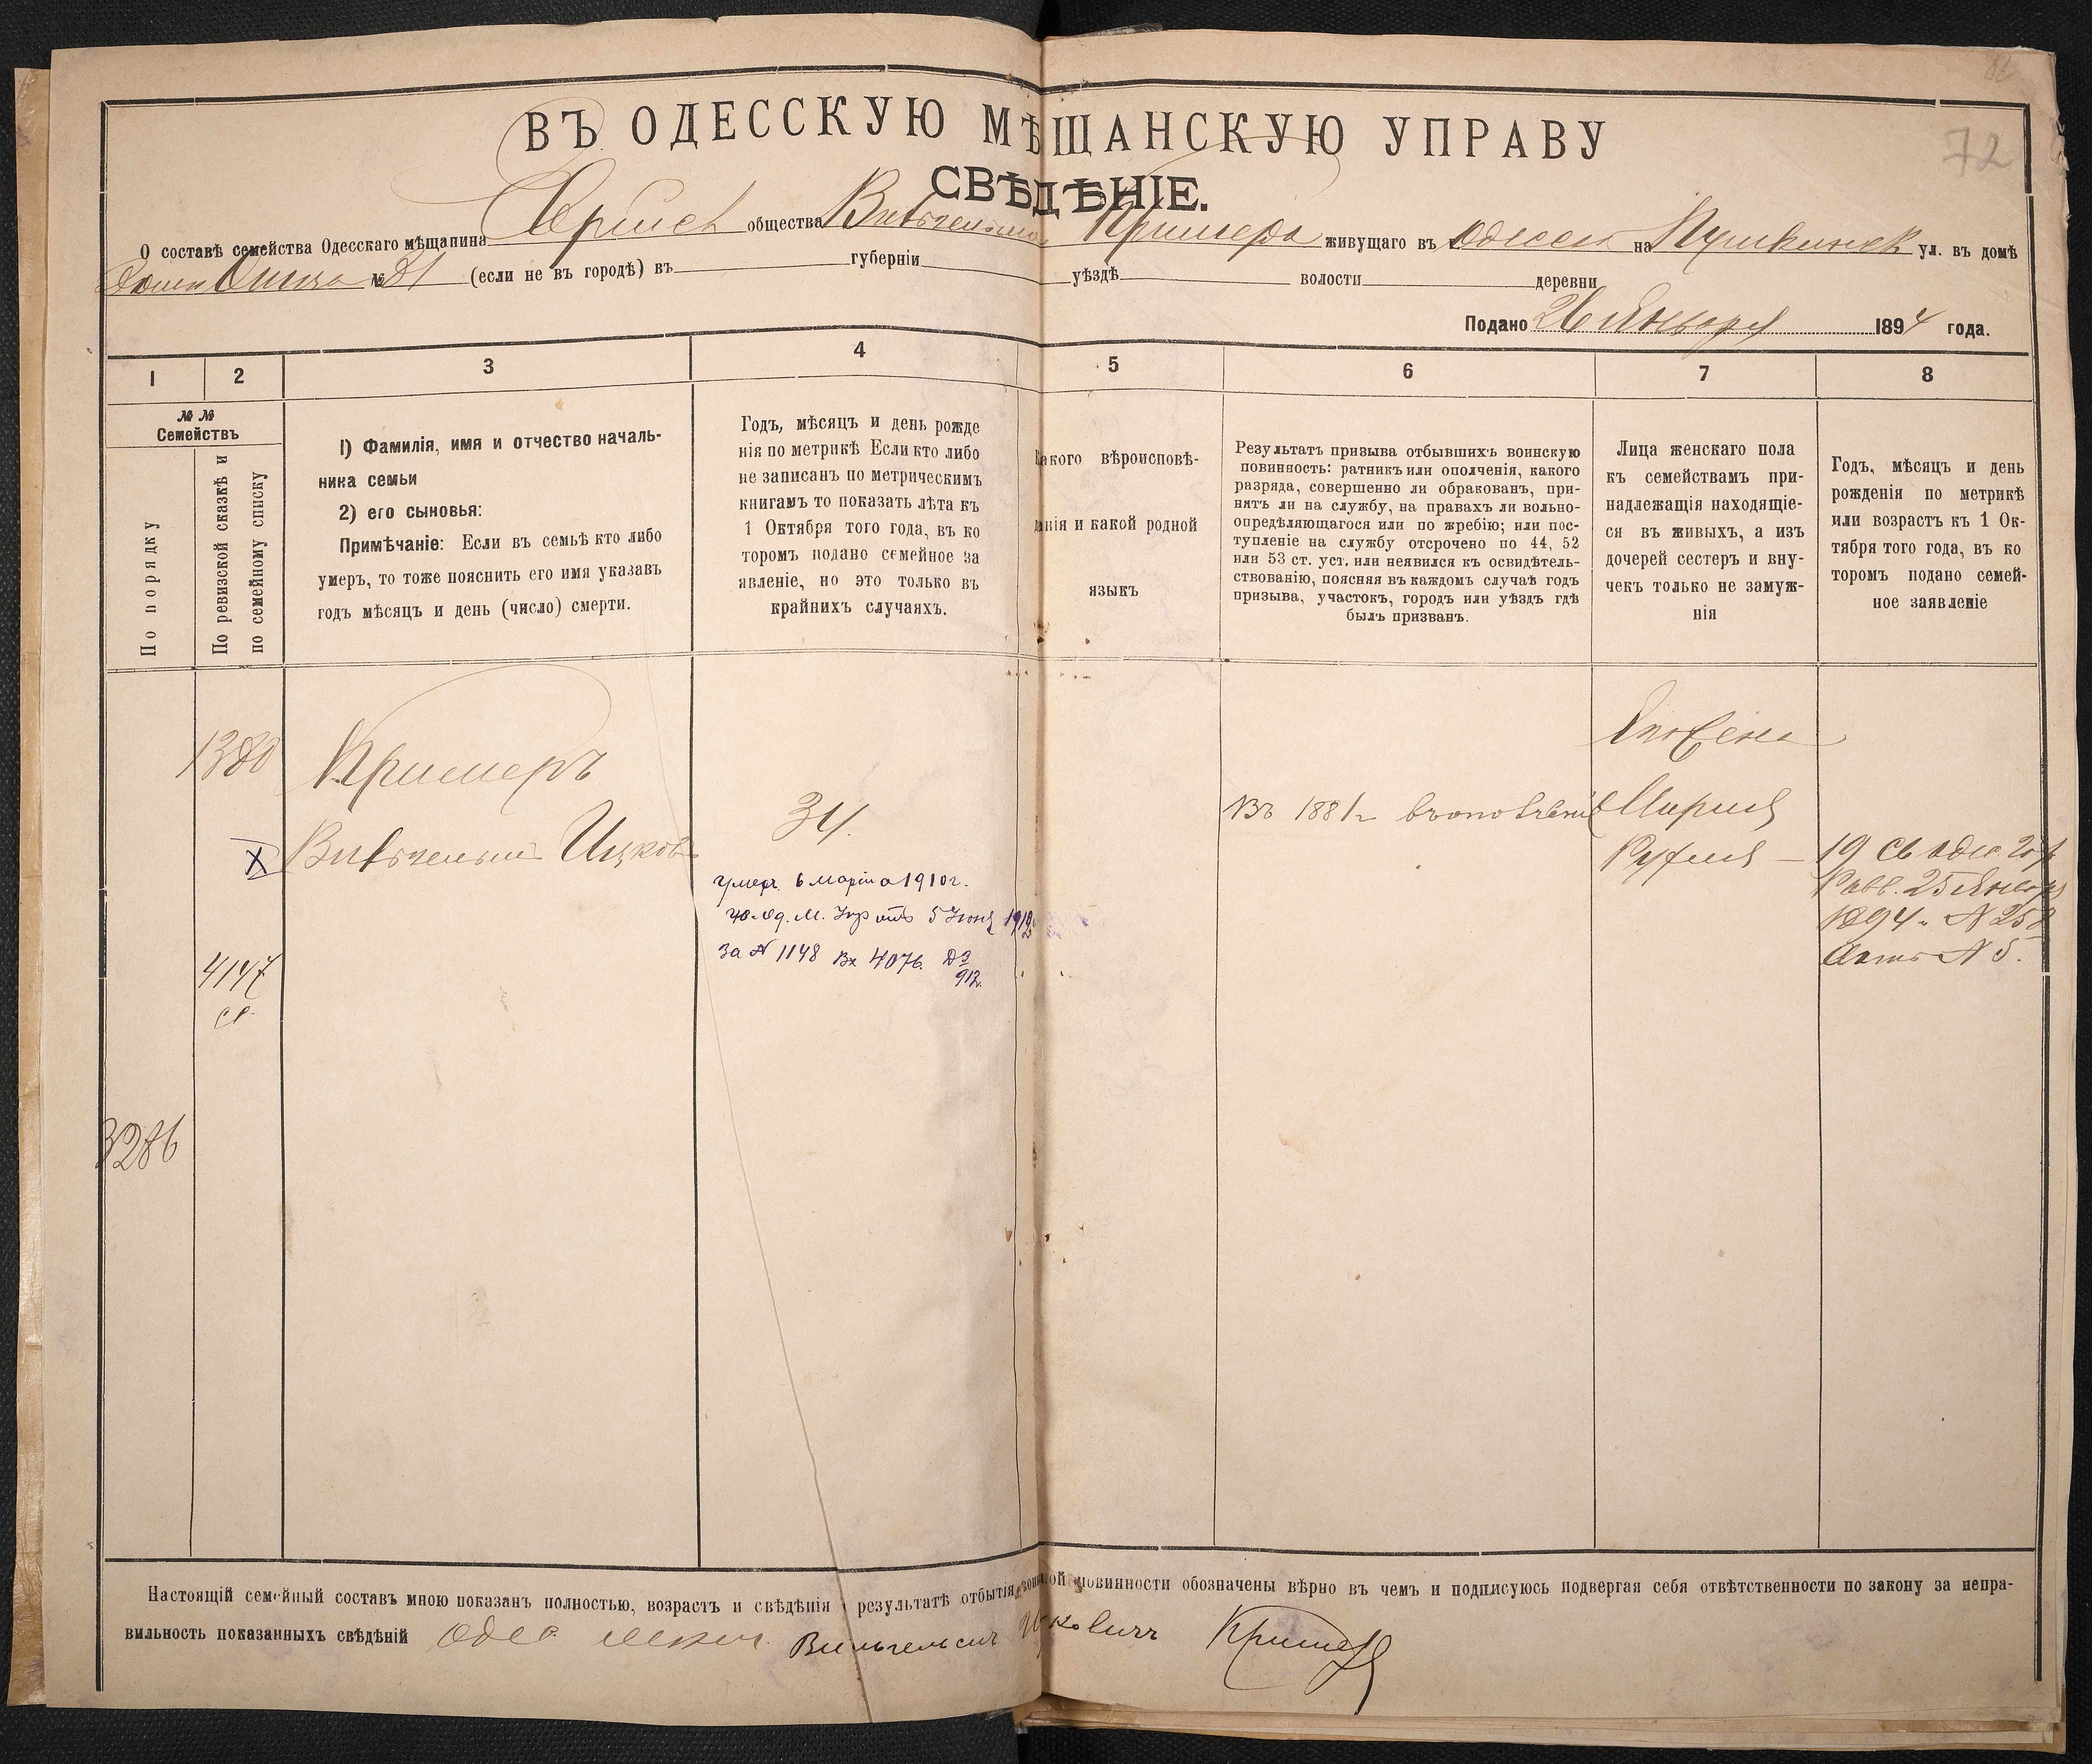 72
ВЪ ОДЕССКУЮ МѢЩАНСКУЮ УПРАВУ
СВѢДѢНІЕ.
О составѣ семейства Одесскаго мѣщанина общества Вильгельма Кримера живущаго въ Одессѣ на Пушкинск ул. въ домѣ
№ (если не въ городѣ) въ губерніи уѣздѣ волости деревни
Подано 26 Января 1894 года.
1 2 3 4 5 6 7 8
№ №
Семействъ
По порядку
По ревизской сказкѣ и
по семейному списку
1) Фамилія, имя и отчество началь-
ника семьи
2) его сыновья:
Примѣчаніе: Если въ семьѣ кто либо
умеръ, то тоже пояснить его имя указавъ
годъ мѣсяцъ и день (число) смерти.
Годъ, мѣсяцъ и день рожде
нія по метрикѣ Если кто либо
не записанъ по метрическимъ
книгамъ то показать лѣта къ
1 Октября того года, въ ко
торомъ подано семейное за
явленіе, но это только въ
крайнихъ случаяхъ.
Какого вѣроисповѣ-
данія и какой родной
языкъ
Результатъ призыва отбывшихъ воинскую
повинность: ратникъ или ополченія, какого
разряда, совершенно ли обракованъ, при-
нятъ ли на службу, на правахъ ли вольно-
опредѣляющагося или по жребію; или пос-
тупленіе на службу отсрочено по 44, 52
или 53 ст. уст. или неявился къ освидѣтель-
ствованію, поясняя въ каждомъ случаѣ годъ
призыва, участокъ, городъ или уѣздъ гдѣ
былъ призванъ.
Лица женскаго пола
къ семействамъ при-
надлежащія находящіе-
ся въ живыхъ, а изъ
дочерей сестеръ и вну-
чекъ только не замуж-
нія
Годъ, мѣсяцъ и день
рожденія по метрикѣ
или возрастъ къ 1 Ок-
тября того года, въ ко
торомъ подано семей-
ное заявленіе
1380
Кримеръ
X
Вильгельмъ Ицков
34
умеръ 6 марта 1910 г.
5 Іюня 1912
за № 1148 Вх 4076
912
Въ 1881 г въ ополченіе
его жена
Марія
Руфля — 19
25 Января
1894 г № 258
Актъ № 5.
4147
3286
Настоящій семейный составъ мною показанъ полностью, возрастъ и свѣдѣнія о результатѣ отбытія воинской повинности обозначены вѣрно въ чемъ и подписуюсь подвергая себя отвѣтственности по закону за непра-
вильность показанныхъ свѣдѣній Одес мѣщ. Вильгельмъ Ицковичъ Кримеръ